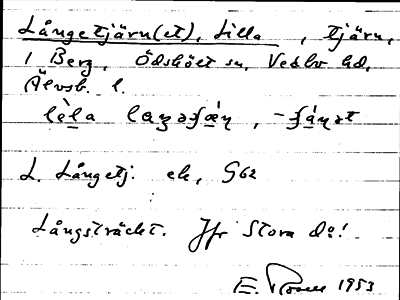 Långetjärn(et), Lilla , tjärn,
i Berg, Ödskölt sn, Vedbo hd,
Älvsb. l.
lèla
L. Långetj. ek, G62
Långsträckt. Jfr Stora Do!
E. 1953